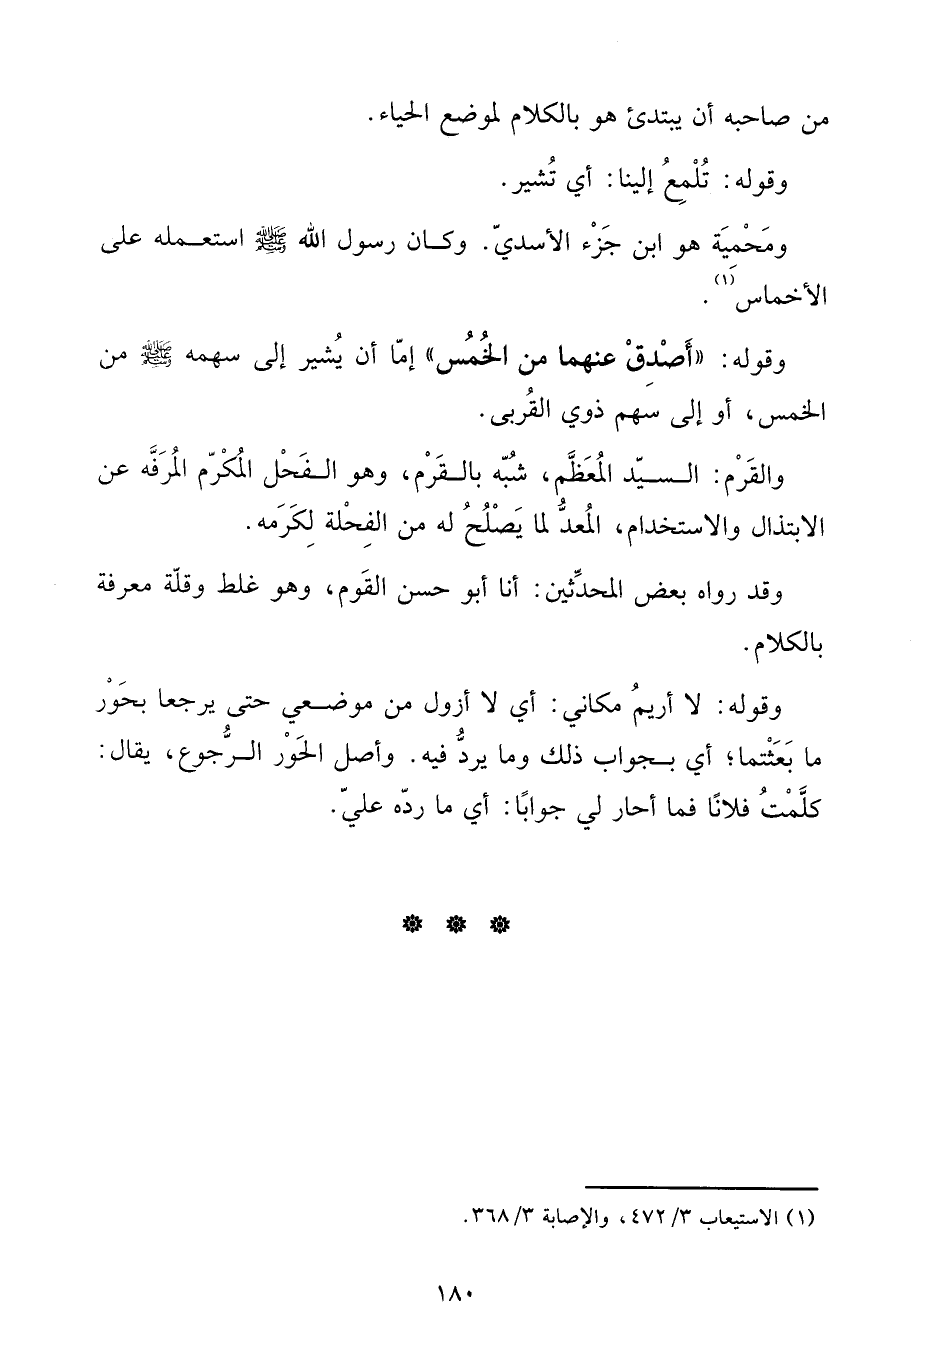 من صاحبه أن يبتدئ هو بالكلام لموضع الحياء.
وقوله: تُلْمِعُ إلينا: أي تُشير.
ومَحْمِيَة هو ابن جَزْء الأسديّ. وكان رسول الله ﷺ استعمله على
الأخماس(١).
وقوله: «أَصْدِقْ عنهما من الخُمُس» إمّا أن يُشير إلى سهمه ﷺ من
الخمس، أو إلى سهم ذوي القُربى.
والقَرْم: السيّد المُعَظَّم، شُبّه بالقَرْم، وهو الفَحْل المُكْرّم المُرَفَّه عن
الابتذال والاستخدام، المُعدُّ لما يَصْلُحُ له من الفِحْلة لِكَرَمه.
وقد رواه بعض المحدِّثين: أنا أبو حسن القَوم، وهو غلط وقلّة معرفة
بالكلام.
وقوله: لا أريمُ مكاني: أي لا أزول من موضعي حتى يرجعا بحَوْر
ما بَعَثْتما؛ أي بجواب ذلك وما يردُّ فيه. وأصل الحَوْر الرُّجوع، يقال:
كلَّمْتُ فلانًا فما أحار لي جوابًا: أي ما ردّه عليّ.
(١) الاستيعاب ٣/ ٤٧٢، والإصابة ٣/ ٣٦٨.
١٨٠